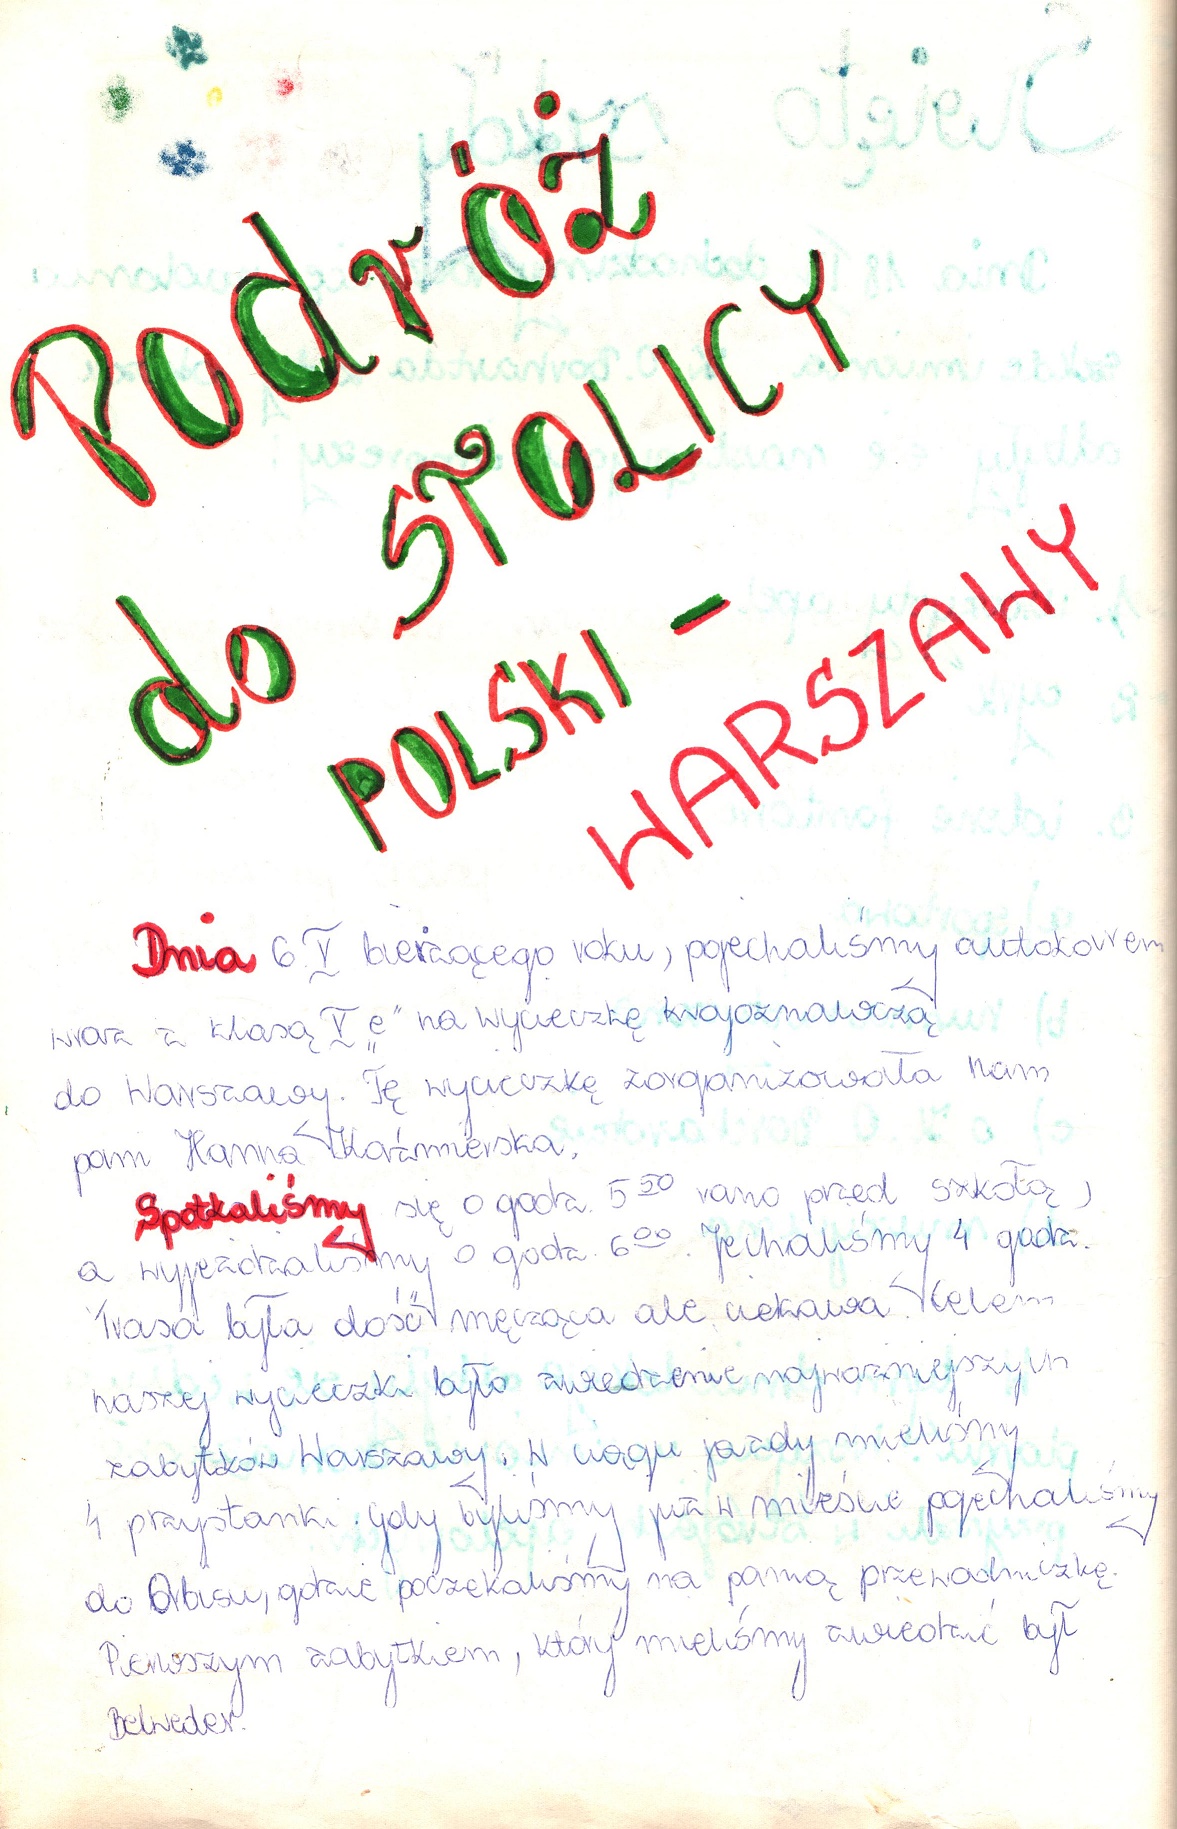 Podróż
do STOLICY
POLSKI -
WARSZAWY
Dnia 6 V bieżącego roku, pojechaliśmy autokarem
wraz z klasą V „e" na wycieczkę krajoznawczą
do Warszawy. Tę wycieczkę zorganizowała nam
pani Hanna Kaźmierska.
Spotkaliśmy się o godz. 5 50 rano przed szkołą,
a wyjeżdżaliśmy o godz. 6 00. Jechaliśmy 4 godz.
Trasa była dość męcząca ale ciekawa. Celem
naszej wycieczki było zwiedzenie najważniejszych
zabytków Warszawy. W ciągu jazdy mieliśmy
4 przystanki. Gdy byliśmy już w mieście pojechaliśmy
do Orbisu, gdzie poczekaliśmy na panią przewodniczkę.
Pierwszym zabytkiem, który mieliśmy zwiedzić był
Belweder.